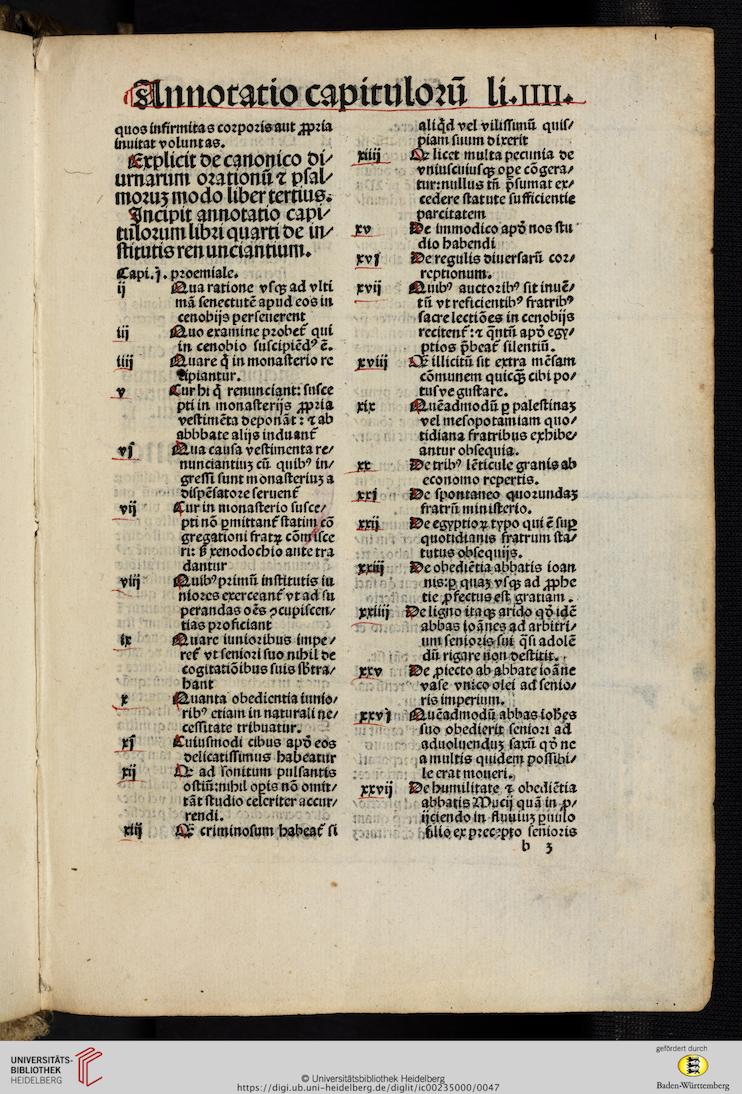 Annotatio capitulorū li.IIII.
quos infirmitas corporis aut ꝓpria
inuitat voluntas.
Explicit de canonico di/
urnarum orationū ⁊ psal/
moruꝫ modo liber tertius.
Incipit annotatio capi/
tulorum libri quarti de in/
stitutis renunciantium.
Capi.j. proemiale.
ij Qua ratione vsqꝫ ad vlti
mā senectutē apud eos in
cenobijs perseuerent
iij Quo examine probet᷑ qui
in cenobio suscipiēdꝰ ē.
iiij Quare q̄ in monasterio re
cipiantur.
v Cur hi q̄ renunciant: susce
pti in monasterijs ꝓpria
vestimēta deponāt: ⁊ ab
abbbate alijs induant᷑
vj Qua causa vestimenta re/
nunciantiuꝫ cū quibꝰ in/
gressi sunt monasteriuꝫ a
dispēsatore seruent᷑
vij Cur in monasterio susce/
pti nō ꝑmittant᷑ statim cō
gregationi fratꝝ cōmisce
ri: sꝫ xenodochio ante tra
dantur
viij Quibꝰ primū institutis iu
niores exerceant᷑ vt ad su
perandas oēs ꝯcupiscen/
tias proficiant
ix Quare iunioribus impe/
ret᷑ vt seniori suo nihil de
cogitatiōibus suis sbtra/
hant
x Quanta obedientia iunio/
ribꝰ etiam in naturali ne/
cessitate tribuatur.
xj Cuiusmodi cibus apd̓ eos
delicatissimus habeatur
xij Qꝫ ad sonitum pulsantis
ostiū: nihil opis nō omit/
tāt studio celeriter accur/
rendi.
xiij Qꝫ criminosum habeat᷑ si
aliqd̓ vel vilissimū quis/
piam suum dixerit
xiiij Qꝫ licet multa pecunia de
vniuscuiusqꝫ oꝑe cōgera/
tur: nullus tn̄ p̄sumat ex/
cedere statute sufficientie
parcitatem
xv De immodico apd̓ nos stu
dio habendi
xvj De regulis diuersarū cor/
reptionum.
xvij Quibꝰ auctoribꝰ sit inuē/
tū vt reficientibꝰ fratribꝰ
sacre lectiōes in cenobijs
recitent᷑: ⁊ qn̄tū apd̓ egy/
ptios p̄beat᷑ silentiū.
xviij Qꝫ illicitū sit extra mēsam
cōmunem quicqꝫ cibi po/
tusve gustare.
xix Quēadmodū ꝑ palestinaꝫ
vel mesopotamiam quo/
tidiana fratribus exhibe/
antur obsequia.
xx De tribꝰ lēticule granis ab
economo repertis.
xxj De spontaneo quorundaꝫ
fratrū ministerio.
xxij De egyptioꝝ typo qui ē suꝑ
quotidianis fratrum sta/
tutus obsequijs.
xxiij De obediētia abbatis ioan
nis: ꝑ quaꝫ vsqꝫ ad ꝓphe
tie ꝓfectus est gratiam.
xxiiij De ligno itaqꝫ arido qd̓ idē
abbas ioānes ad arbitri/
um senioris sui qsi adolē
dū rigare non destitit.
xxv De ꝓiecto ab abbate ioāne
vase vnico olei ad senio/
ris imperium.
xxvj Quēadmodū abbas iohēs
suo obedierit seniori ad
aduoluenduꝫ saxū qd̓ ne
a multis quidem possibi/
le erat moueri.
xxvij De humilitate ⁊ obediētia
abbatis Mucij quā in ꝓ/
ijciendo in fluuiuꝫ ꝑuulo
filio ex precepto senioris
b 3
UNIVERSITÄTS-
BIBLIOTHEK
HEIDELBERG
© Universitätsbibliothek Heidelberg
https://digi.ub.uni-heidelberg.de/diglit/ic00235000/0047
gefördert durch
Baden-Württemberg